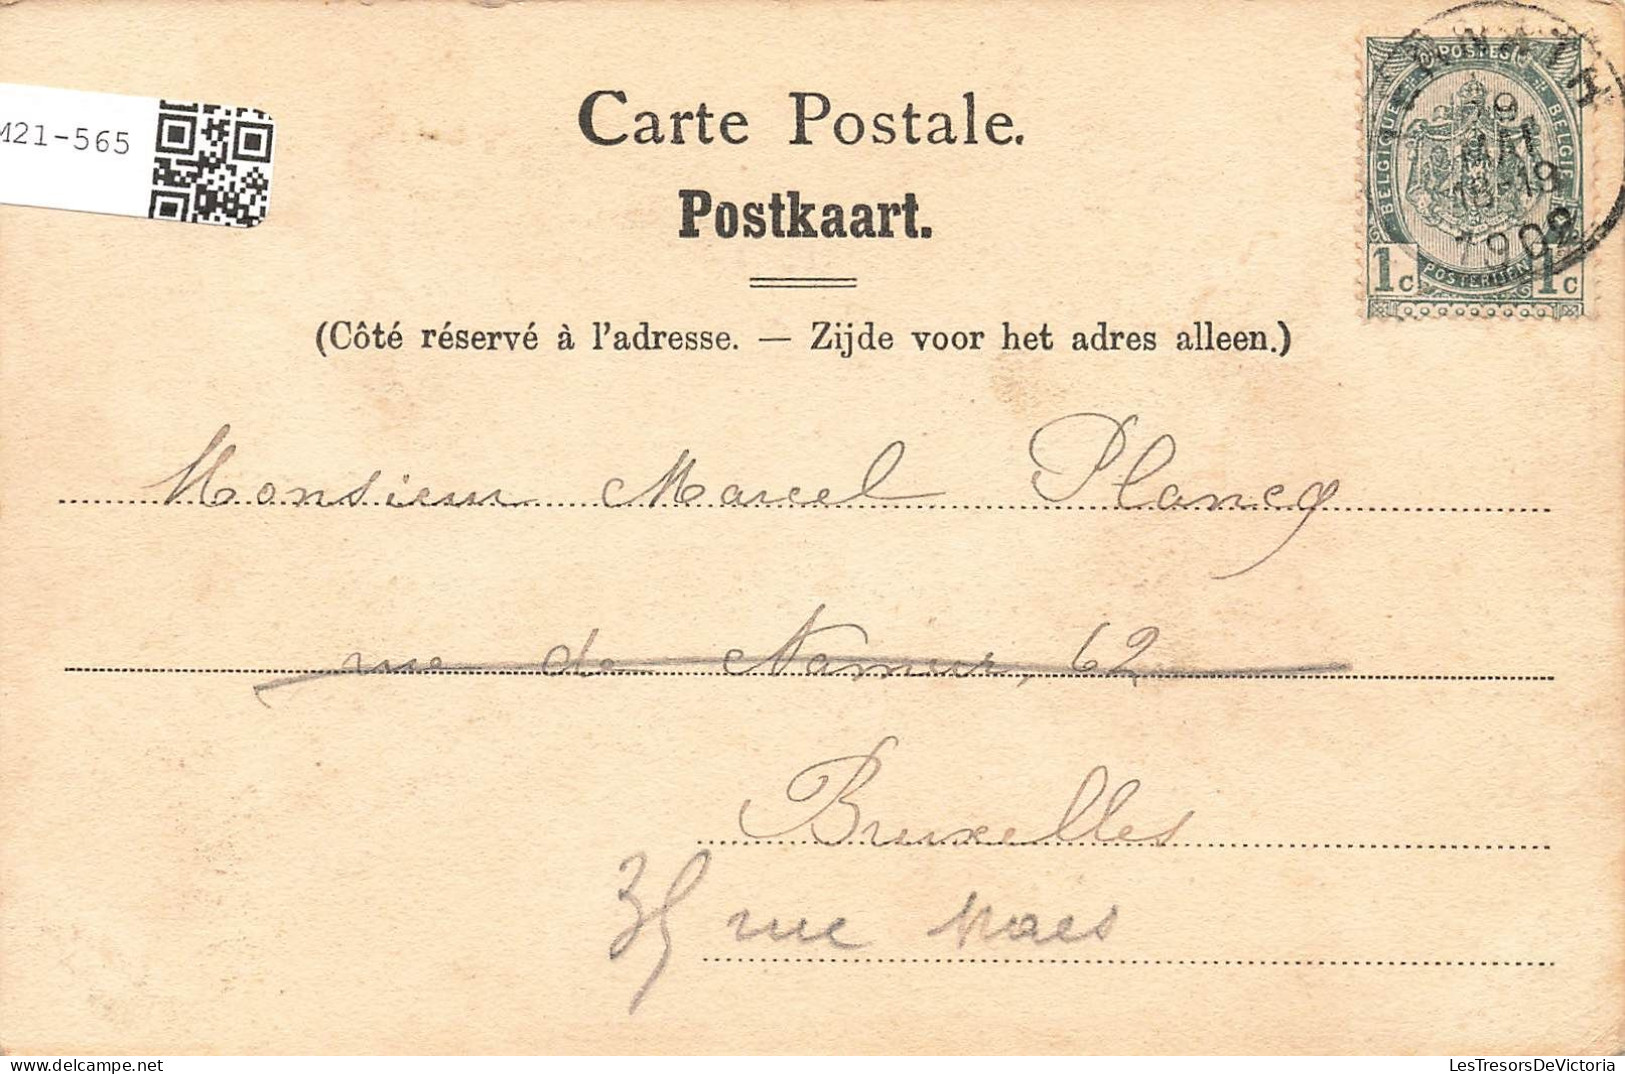 M21-565
Carte Postale.
Postkaart.
(Côté réservé à l'adresse. — Zijde voor het adres alleen.)
POSTES
BELGIQUE
BELGIË
1c
POSTERIJEN
1c
MAI
18-19
1902
Monsieur Marcel Plancq
rue de Namur, 62
Bruxelles
35 rue Maes
LesTresorsDeVictoria